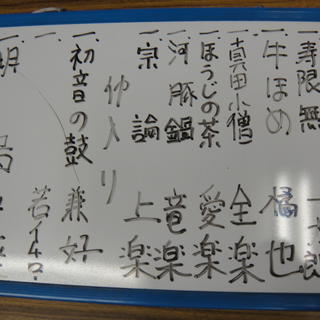 一、寿限無
一、牛ほめ 橘也
一、真田小僧 全楽
一、ほうじの茶 愛楽
一、河豚鍋 竜楽
一、宗論 上楽
仲入り
一、初音の鼓 兼好
一、
一、明